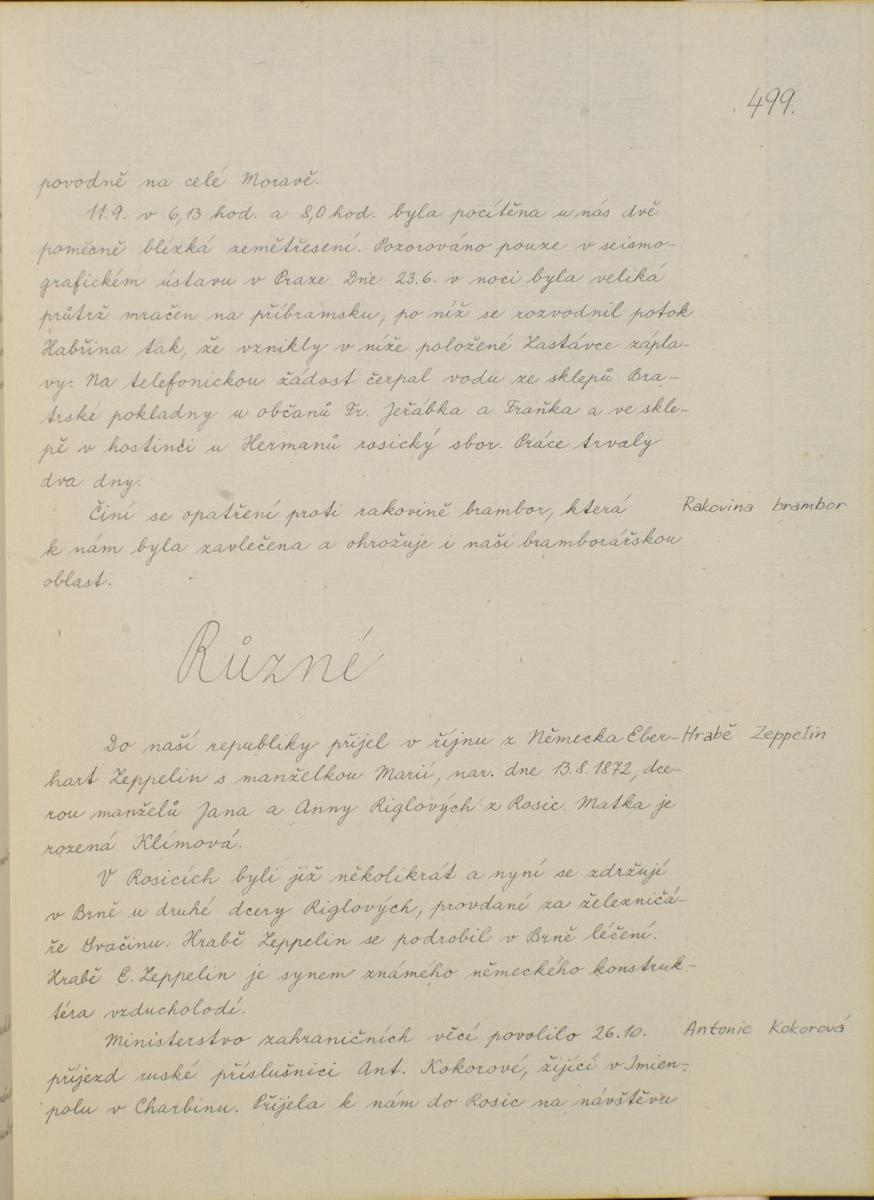 499.
povodně na celé Moravě.
11.9. v 6,13 hod. a 8,0 hod. byla pocítěna u nás dvě
poměrně blízká zemětřesení. Pozorováno pouze v seismo-
grafickém ústavu v Praze. Dne 23.6. v noci byla veliká
průtrž mračen na příbramsku, po níž se rozvodnil potok
Habřina tak, že vznikly v níže položené Zastávce zápla-
vy. Na telefonickou žádost čerpal vodu ze sklepů Bra-
trské pokladny u občanů Fr. Jeřábka a Fraňka a ve skle-
pě v hostinci u Hermanů rosický sbor. Práce trvaly
dva dny.
Činí se opatření proti rakovině brambor, která
Rakovina brambor
k nám byla zavlečena a ohrožuje i naši bramborářskou
oblast.
Různé
Do naší republiky přijel v říjnu z Německa Eber-
Hrabě Zeppelin
hart Zeppelin s manželkou Marií, nar. dne 13.8.1872, dce-
rou manželů Jana a Anny Riglových z Rosic. Matka je
rozená Klímová.
V Rosicích byli již několikrát a nyní se zdržují
v Brně u druhé dcery Riglových, provdané za železničá-
ře Svačinu. Hrabě Zeppelin se podrobil v Brně léčení.
Hrabě E. Zeppelin je synem známého německého konstruk-
téra vzducholodí.
Ministerstvo zahraničních věcí povolilo 26.10.
Antonie Kokorová
příjezd ruské příslušnici Ant. Kokorové, žijící v Imien-
polu v Charbinu. Přijela k nám do Rosic na návštěvu